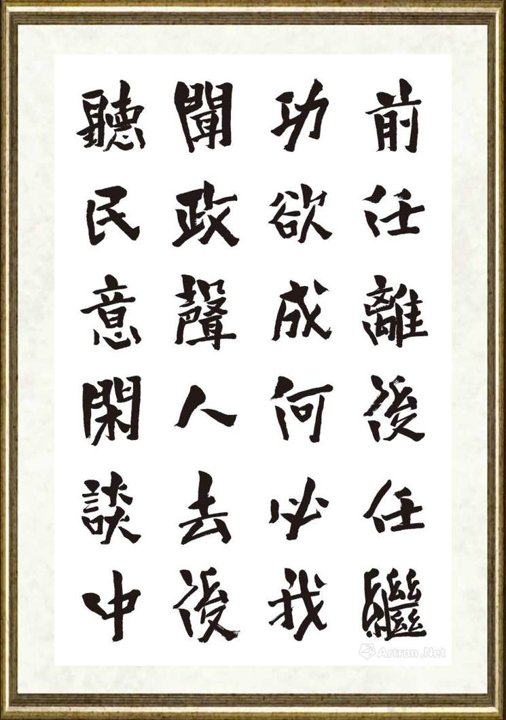 前任離後任繼
功欲成何必我
聞政聲人去後
聽民意閑談中
Artron.Net